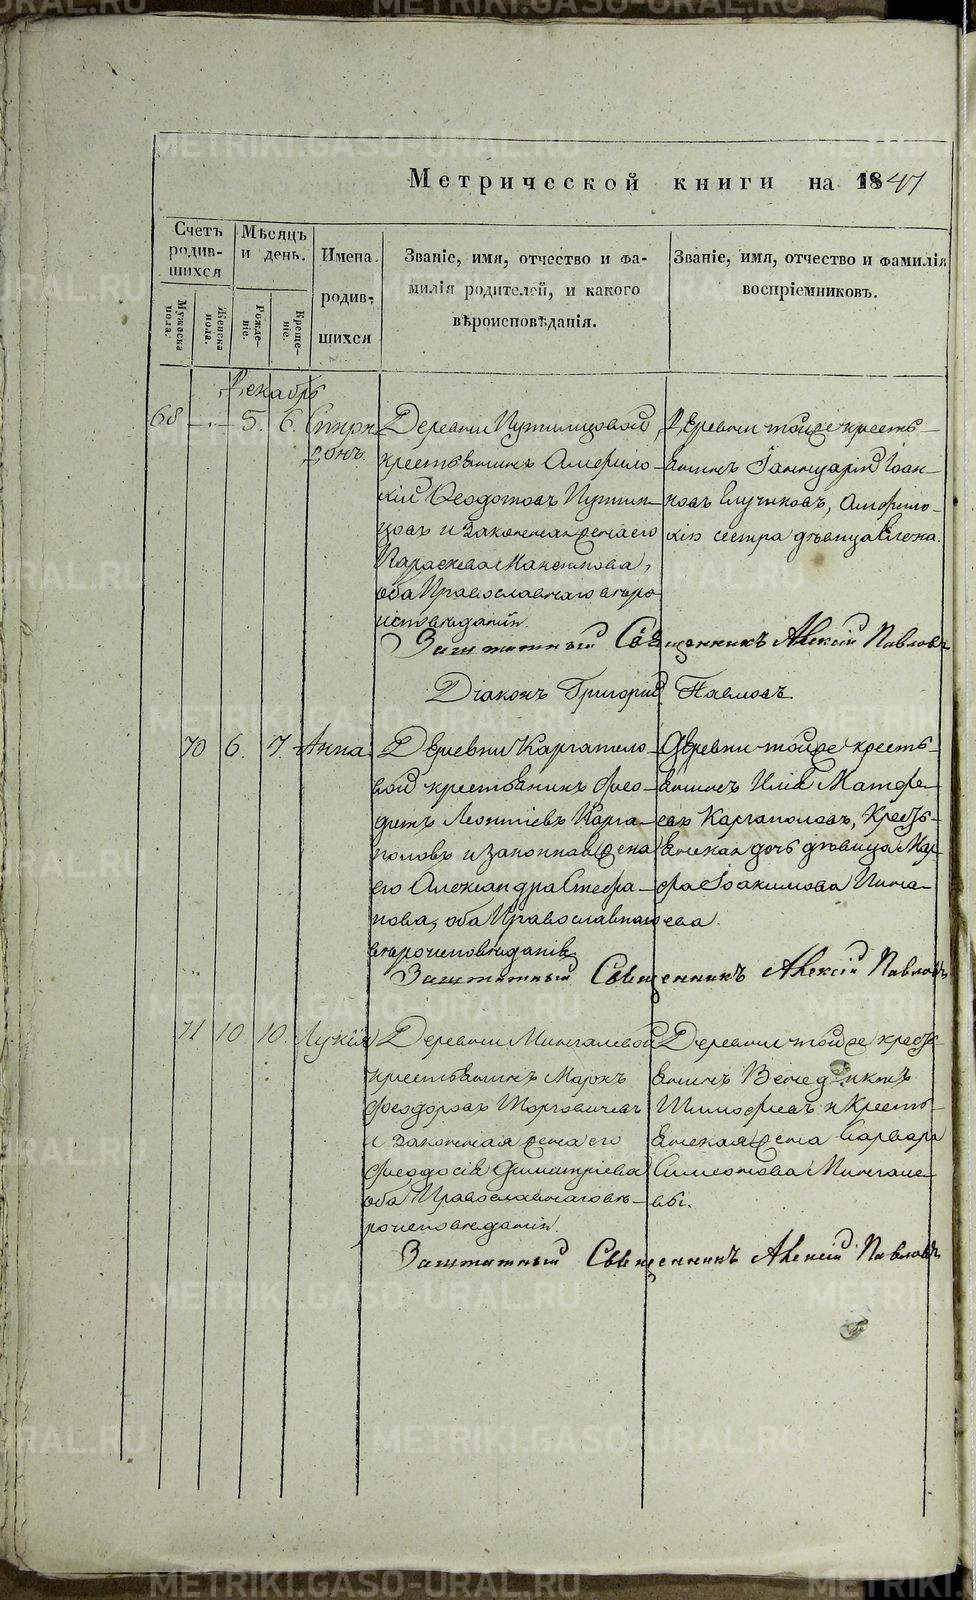 METRIKI.GASO-URAL.RU
Метрической книги на 1847
Счетъ родив-шихся
Мѣсяцъ и день.
Имена родив-шихся
Званіе, имя, отчество и фа-
милія родителей, и какого
вѣроисповѣданія.
Званіе, имя, отчество и фамилія
воспріемниковъ.
Мужеска пола.
Женска пола.
Рожде-ніе.
Креще-ніе.
Декабрь
68 — 5. 6. Спири-
донъ.
Деревни Путимцовой,
крестьянинъ Амфило-
хій Ѳеодотовъ Путим-
цовъ и законная жена его
Параскева Максимова,
оба Православнаго вѣро
исповѣданія.
Деревни тойже кресть-
янинъ Іаннуарій Іоан-
новъ Ключиковъ, Амфило-
хія сестра дѣвица Елена.
Заштатный Священникъ Алексій Павловъ
Діаконъ Григорій Павловъ.
70 6. 7. Анна
Деревни Каргаполо-
вой крестьянинъ Фео-
дотъ Леонтіевъ Карга-
половъ и законная жена
его Александра Стефа-
нова, оба Православнаго
вѣроисповѣданія
Деревни тойже кресть-
янинъ Илія Матфе-
евъ Каргаполовъ, Кресть-
янская дочь дѣвица Мар-
фа Іоакимова Пина-
ева.
Заштатный Священникъ Алексій Павловъ
71 10 10. Лукія
Деревни Мингалевой
крестьянинъ Маркъ
Феодоровъ
и законная жена его
Феодосія Димитріева
оба Православнаго вѣ-
роисповѣданія.
Деревни тойже кресть-
янинъ Венедиктъ
Тимофеевъ и Кресть-
янская жена Варвара
Симеонова Мингале-
вы.
Заштатный Священникъ Алексій Павловъ